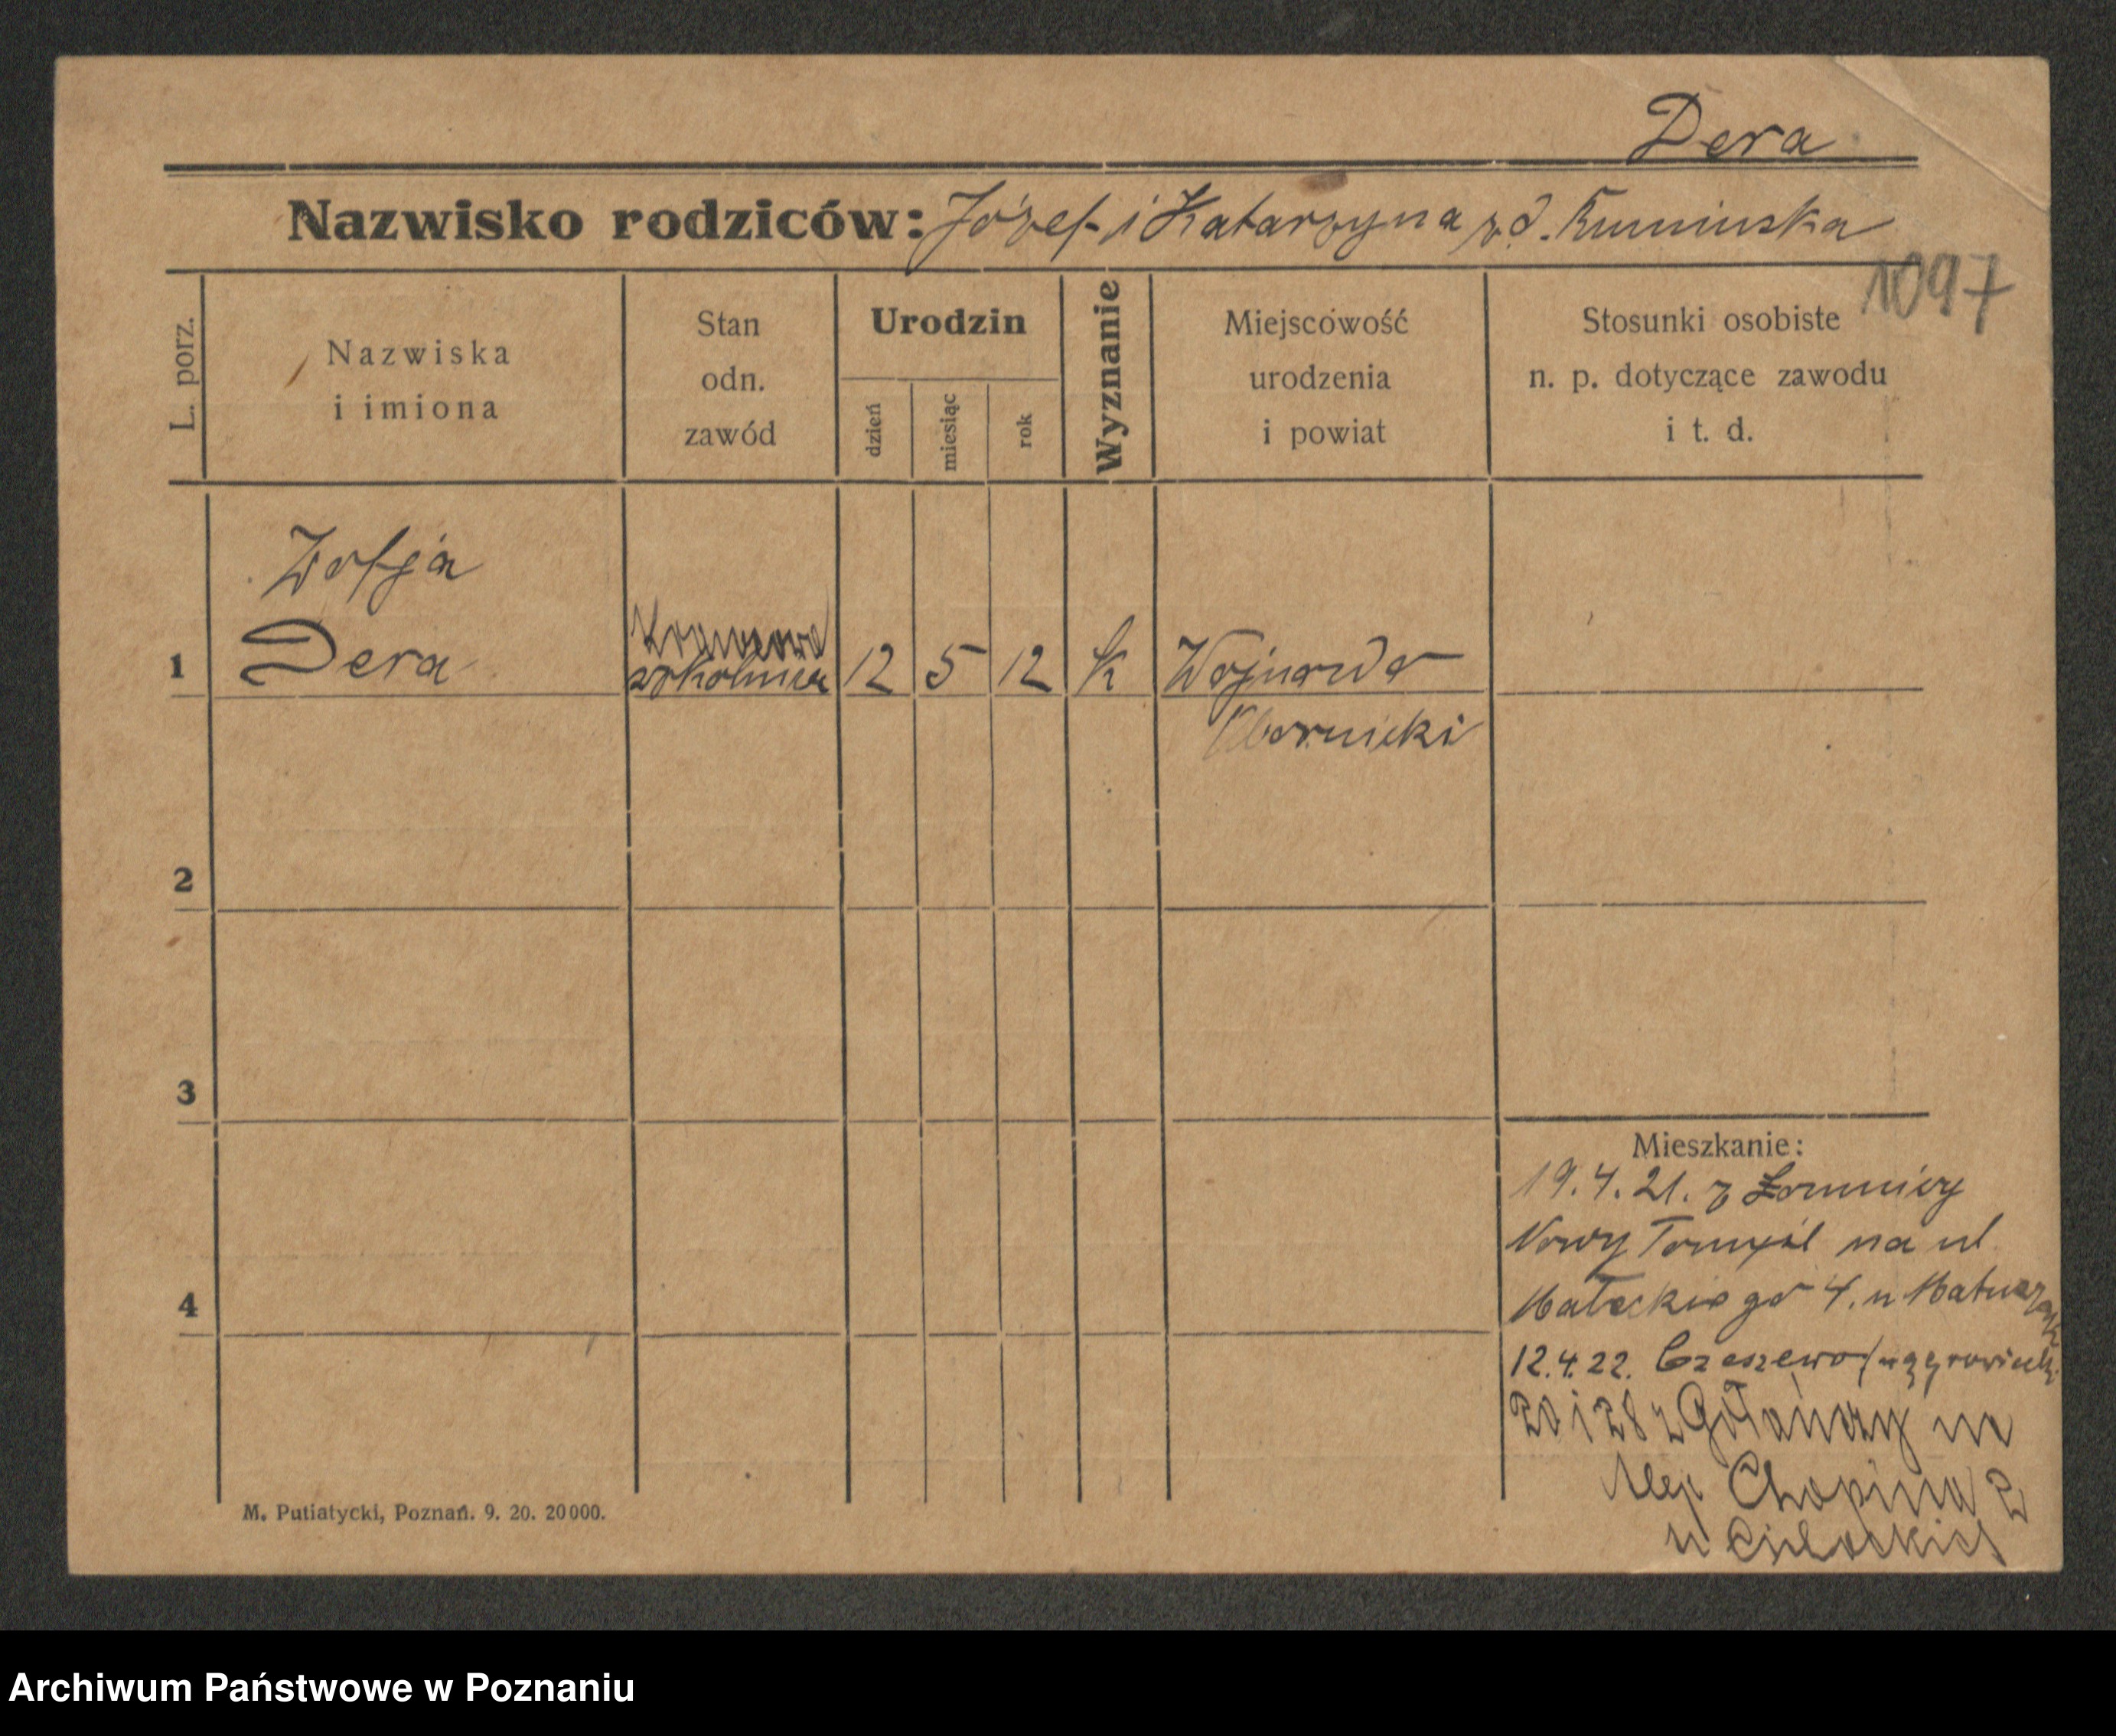 Dera
Nazwisko rodziców: Józef i Katarzyna z d. Kuminska
1097
L. porz.
Nazwiska
i imiona
Stan
odn.
zawód
Urodzin
dzień
miesiąc
rok
Wyznanie
Miejscowość
urodzenia
i powiat
Stosunki osobiste
n. p. dotyczące zawodu
i t. d.
Zofja
1 Dera szkolnica 12 5 12 k Wojnowo
Obornicki
2
3
4
Mieszkanie:
19.4.21. z Łomnicy
Nowy Tomyśl na ul
Małeckiego 4. u
12.4.22. Czeszewo/wągrowiecki
20 1 28 z Gołańczy na
Alej. Chopina 2
u
M. Putiatycki, Poznań. 9. 20. 20000.
Archiwum Państwowe w Poznaniu